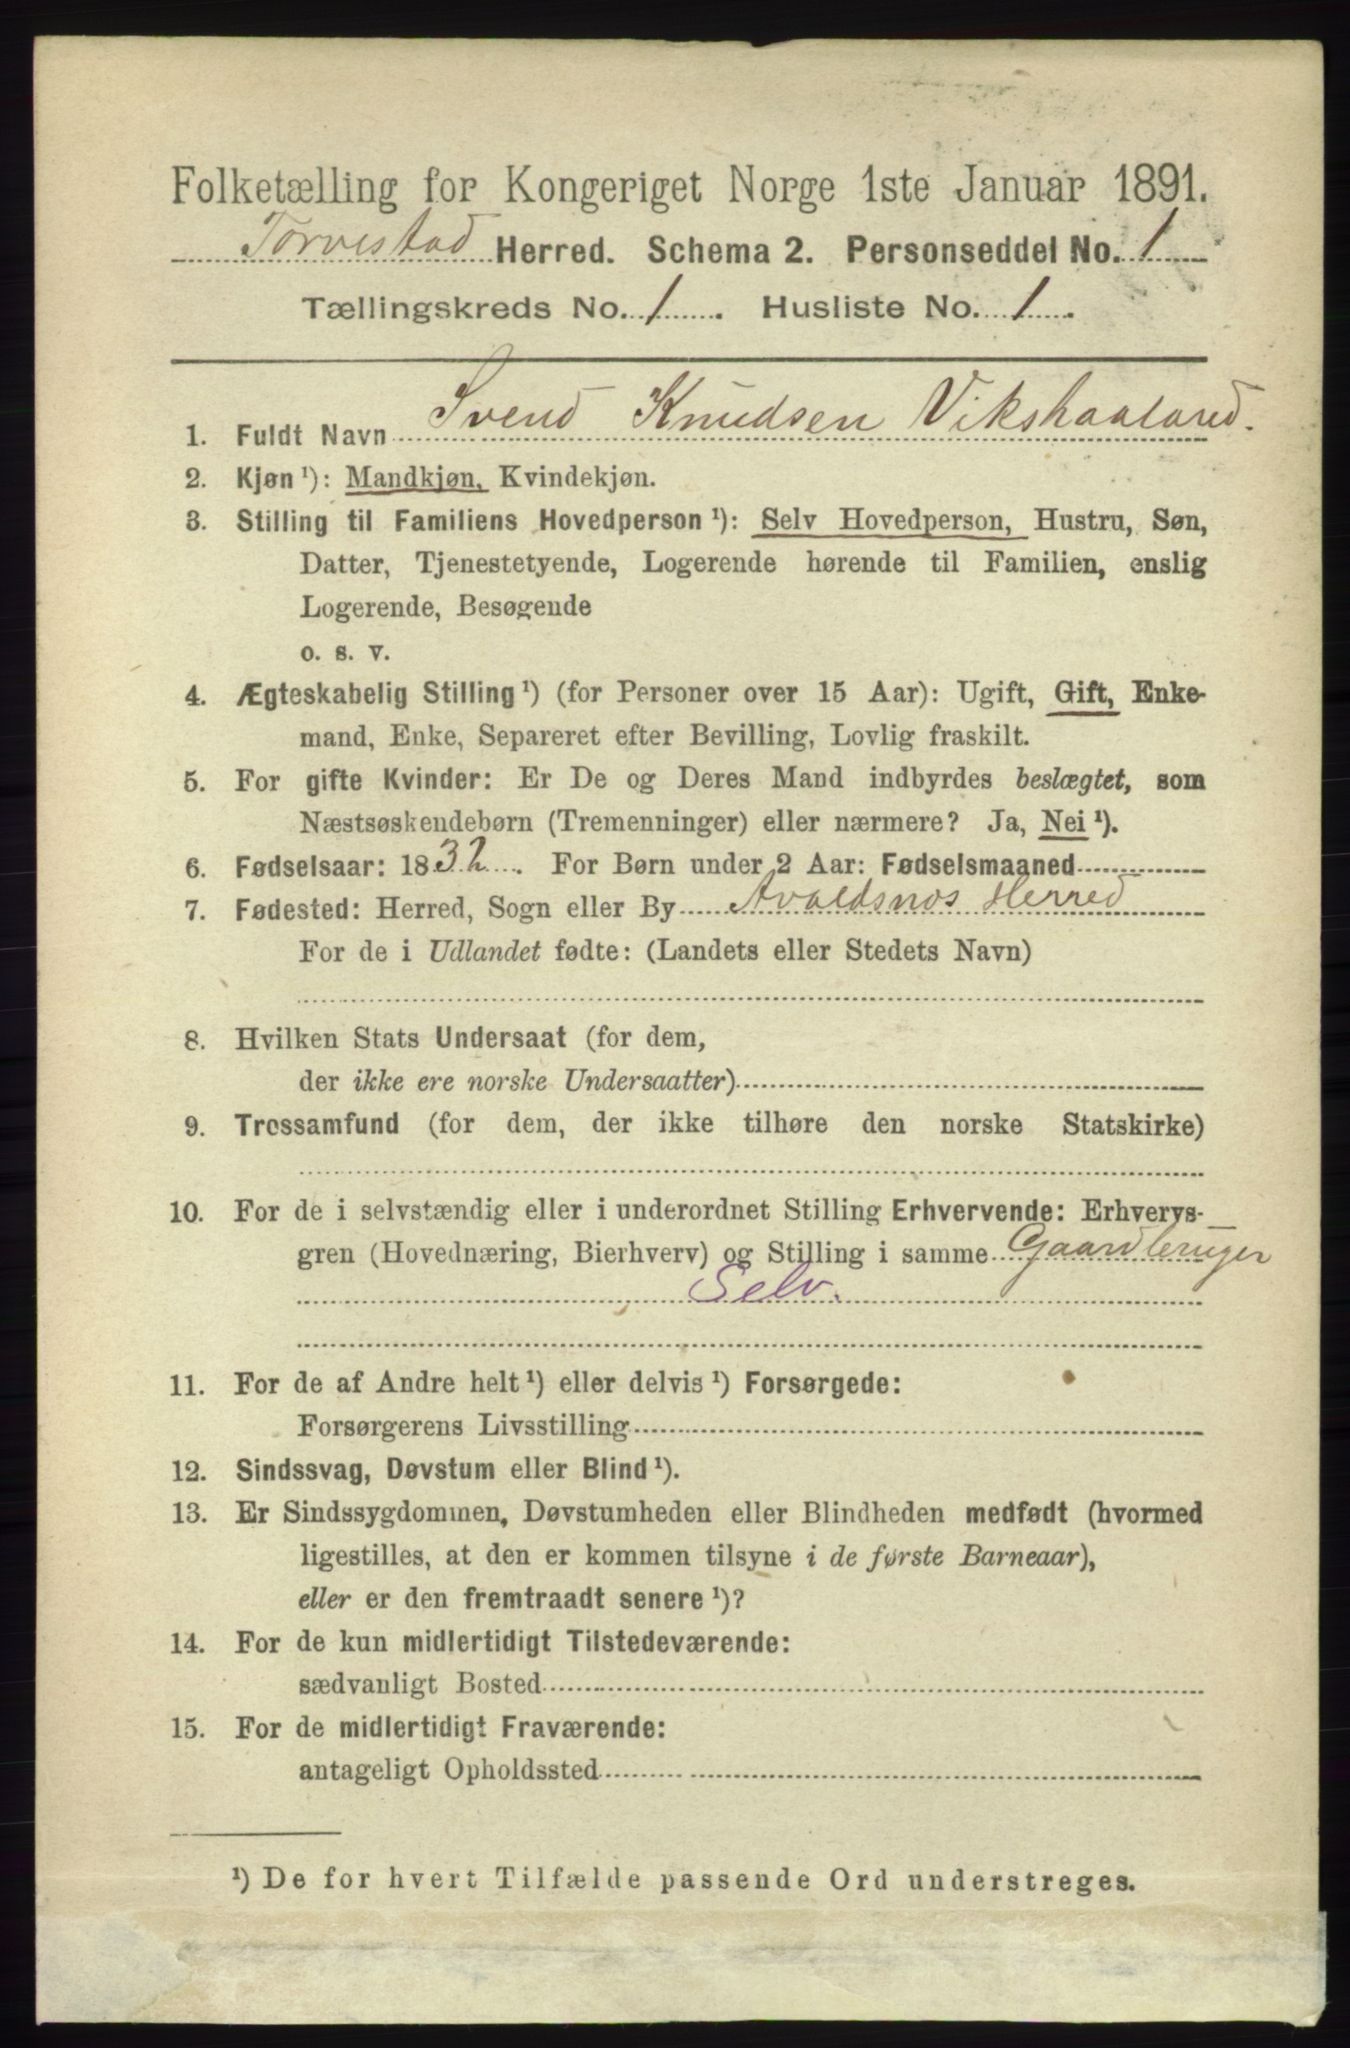 Folketælling for Kongeriget Norge 1ste Januar 1891.
Torvestad Herred. Schema 2. Personseddel No. 1
Tællingskreds No. 1. Husliste No. 1.
1. Fuldt Navn Svend Knudsen Vikshaaland.
2. Kjøn ¹): Mandkjøn, Kvindekjøn.
3. Stilling til Familiens Hovedperson ¹): Selv Hovedperson, Hustru, Søn,
Datter, Tjenestetyende, Logerende hørende til Familien, enslig
Logerende, Besøgende
o. s. v.
4. Ægteskabelig Stilling ¹) (for Personer over 15 Aar): Ugift, Gift, Enke-
mand, Enke, Separeret efter Bevilling, Lovlig fraskilt.
5. For gifte Kvinder: Er De og Deres Mand indbyrdes beslægtet, som
Næstsøskendebørn (Tremenninger) eller nærmere? Ja, Nei ¹).
6. Fødselsaar: 1832. For Børn under 2 Aar: Fødselsmaaned
7. Fødested: Herred, Sogn eller By Avaldsnes Herred
For de i Udlandet fødte: (Landets eller Stedets Navn)
8. Hvilken Stats Undersaat (for dem,
der ikke ere norske Undersaatter)
9. Trossamfund (for dem, der ikke tilhøre den norske Statskirke)
10. For de i selvstændig eller i underordnet Stilling Erhvervende: Erhvervs-
gren (Hovednæring, Bierhverv) og Stilling i samme Gaardbruger
Selv.
11. For de af Andre helt ¹) eller delvis ¹) Forsørgede:
Forsørgerens Livsstilling
12. Sindssvag, Døvstum eller Blind ¹).
13. Er Sindssygdommen, Døvstumheden eller Blindheden medfødt (hvormed
ligestilles, at den er kommen tilsyne i de første Barneaar),
eller er den fremtraadt senere ¹)?
14. For de kun midlertidigt Tilstedeværende:
sædvanligt Bosted
15. For de midlertidigt Fraværende:
antageligt Opholdssted
¹) De for hvert Tilfælde passende Ord understreges.